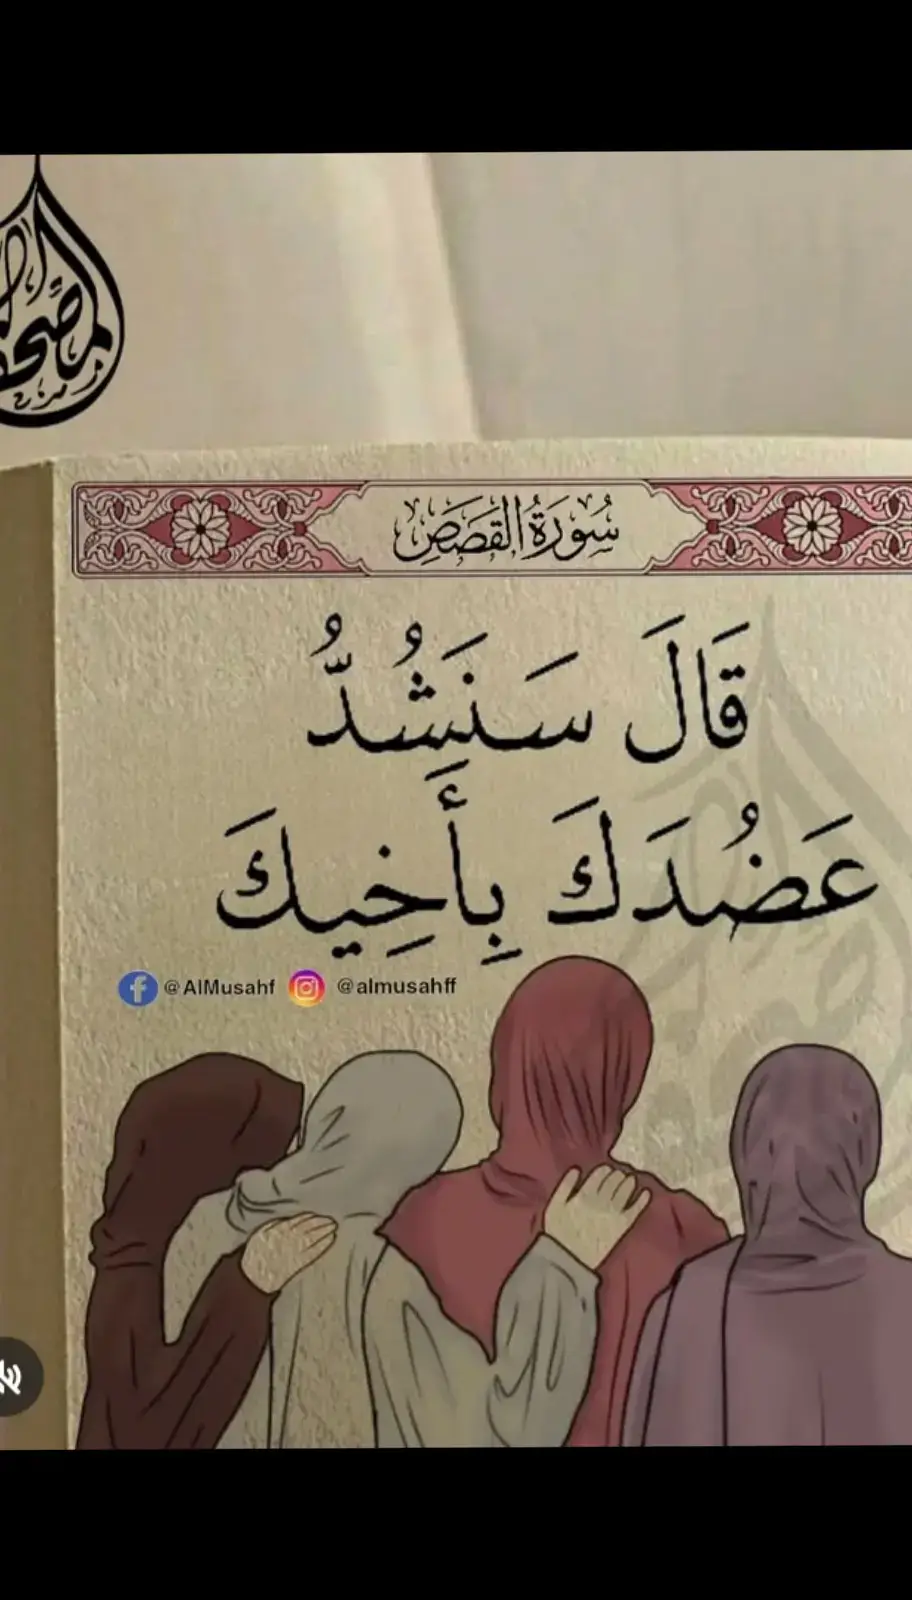 المصحف
سُورَةُ القَصَصِ
قَالَ سَنَشُدُّ
عَضُدَكَ بِأَخِيكَ
@AlMusahf @almusahff